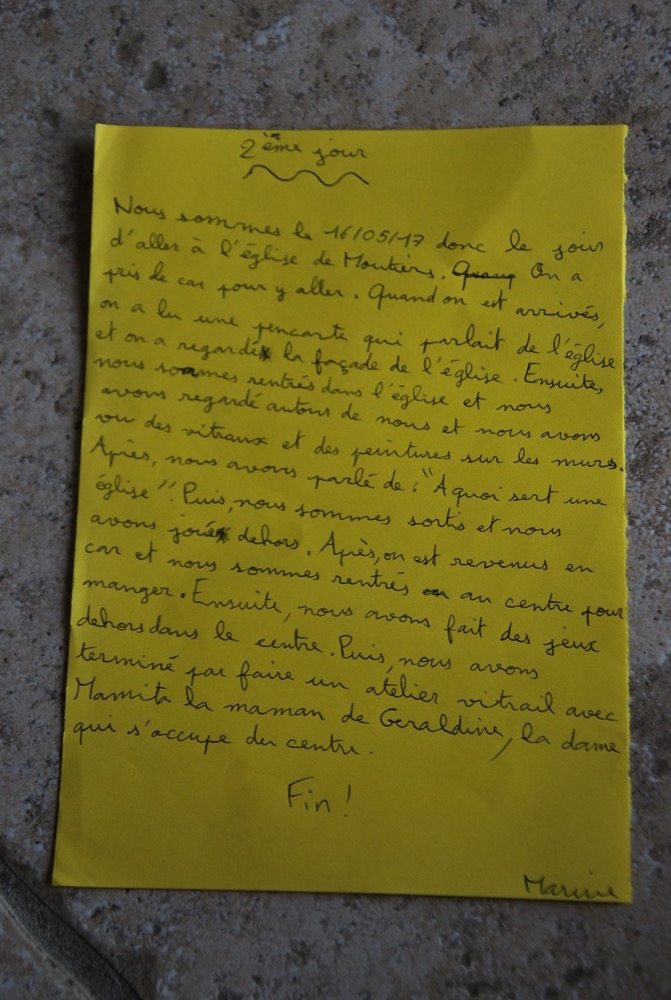 2ème jour
Nous sommes le 16/05/17 donc le jour
d'aller à l'église de Moutiers. On a
pris le car pour y aller. Quand on est arrivés,
on a lu une pencarte qui parlait de l'église
et on a regardé la façade de l'église. Ensuite,
nous sommes rentrés dans l'église et nous
avons regardé autour de nous et nous avons
vu des vitraux et des peintures sur les murs.
Après, nous avons parlé de : "A quoi sert une
église". Puis, nous sommes sortis et nous
avons joué dehors. Après, on est revenus en
car et nous sommes rentrés au centre pour
manger. Ensuite, nous avons fait des jeux
dehors dans le centre. Puis, nous avons
terminé par faire un atelier vitrail avec
Mamita la maman de Geraldine, la dame
qui s'occupe du centre.
Fin !
Marine